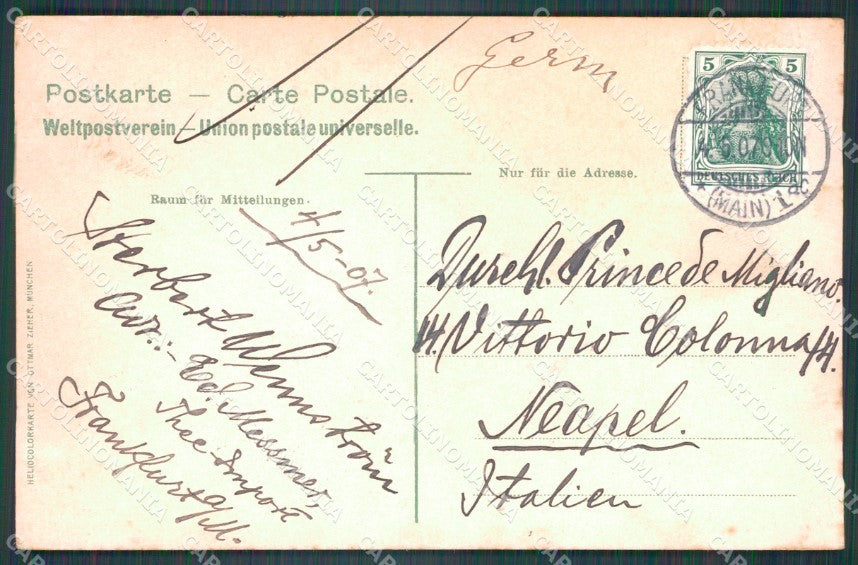 Germ
Postkarte — Carte Postale.
Weltpostverein – Union postale universelle.
Nur für die Adresse.
Raum für Mitteilungen.
5 5
DEUTSCHES REICH
FRANKFURT
(MAIN) 1
4/5-07.
Herbert Wennström
Adr:- Ed. Messmer,
Thee Import
Frankfurt a/M.
Durchl. Prince de Migliano.
14. Vittorio Colonna/14.
Neapel.
Italien
HELIOCOLORKARTE VON OTTMAR ZIEHER, MÜNCHEN
CARTOLINOMANIA